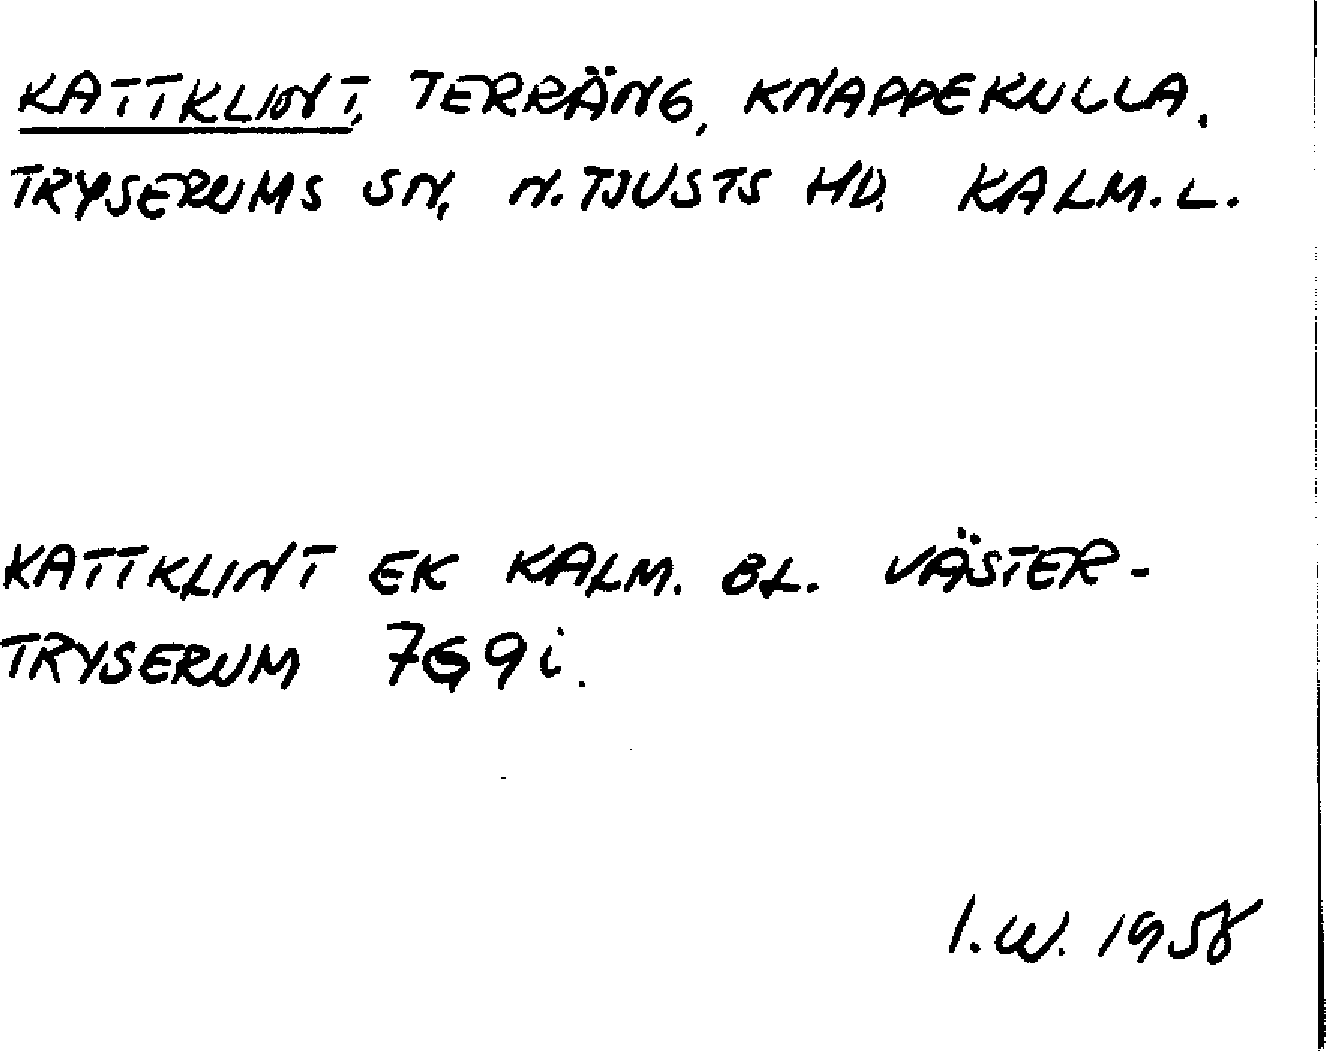 KATTKLINT, TERRÄNG, KNAPPEKULLA.
TRYSERUMS SN, N. TJUSTS HD. KALM. L.
KATTKLINT EK KALM. BL. VÄSTER-
TRYSERUM 7G9i.
I. W. 1958